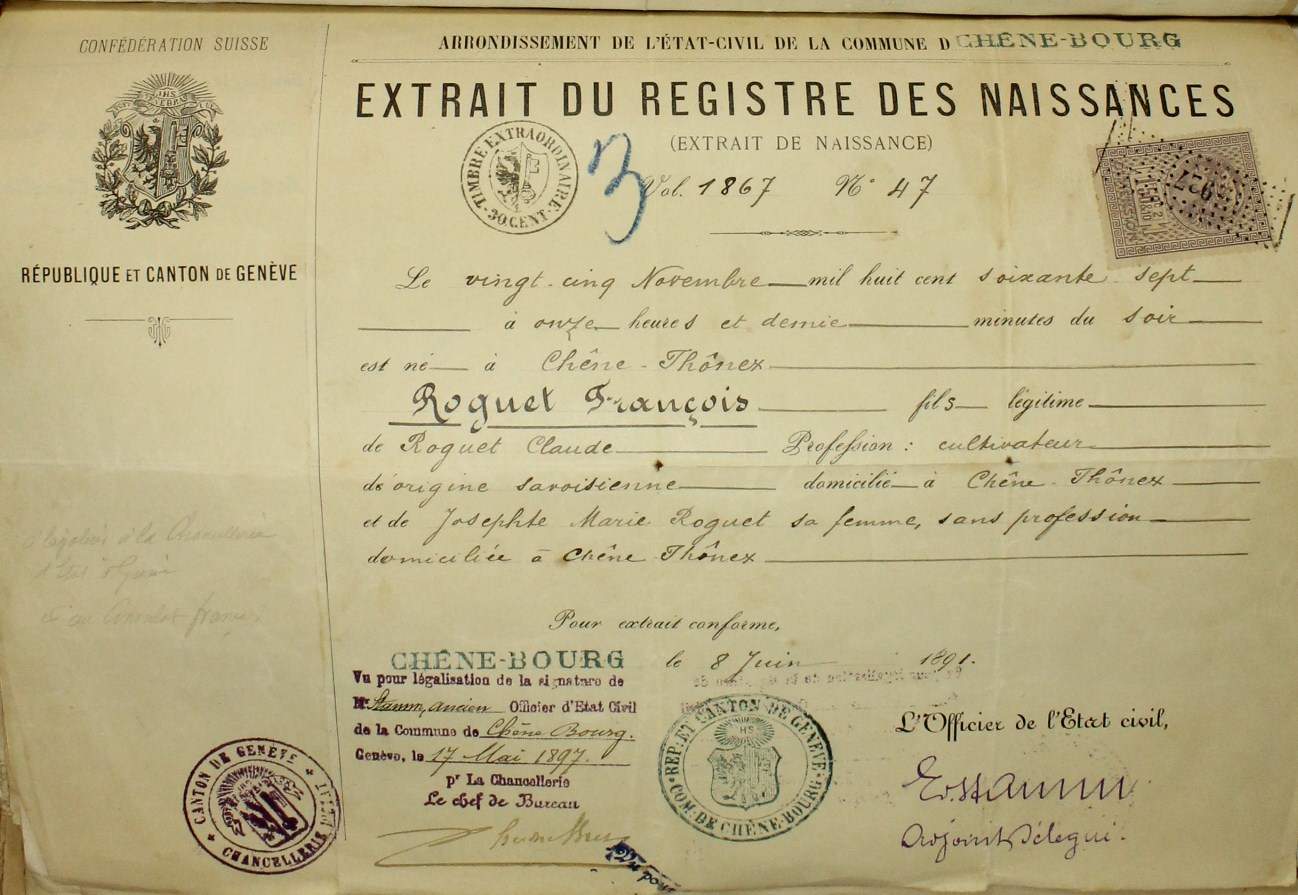 CONFÉDÉRATION SUISSE
RÉPUBLIQUE ET CANTON DE GENÈVE
ARRONDISSEMENT DE L'ÉTAT-CIVIL DE LA COMMUNE D CHÊNE-BOURG
EXTRAIT DU REGISTRE DES NAISSANCES
(EXTRAIT DE NAISSANCE)
TIMBRE EXTRAORDINAIRE
30 CENT.
3
Vol. 1867 N° 47
Le vingt-cinq Novembre mil huit cent soixante sept
à onze heures et demie minutes du soir
est né à Chêne-Thônex
Roguet François fils légitime
de Roguet Claude Profession : cultivateur
d'origine savoisienne domicilié à Chêne-Thônex
et de Josephte Marie Roguet sa femme, sans profession
domiciliée à Chêne-Thônex
Pour extrait conforme,
CHÊNE-BOURG le 8 Juin 1891.
Vu pour légalisation de la signature de
Mr Stamm, ancien Officier d'Etat Civil
de la Commune de Chêne Bourg.
Genève, le 17 Mai 1897.
pr La Chancellerie
Le chef de Bureau
CANTON DE GENÈVE
CHANCELLERIE
RÉP. ET CANTON DE GENÈVE
COM. DE CHÊNE-BOURG
L'Officier de l'Etat civil,
E. Stamm
Adjoint Délégué.
Vu pour